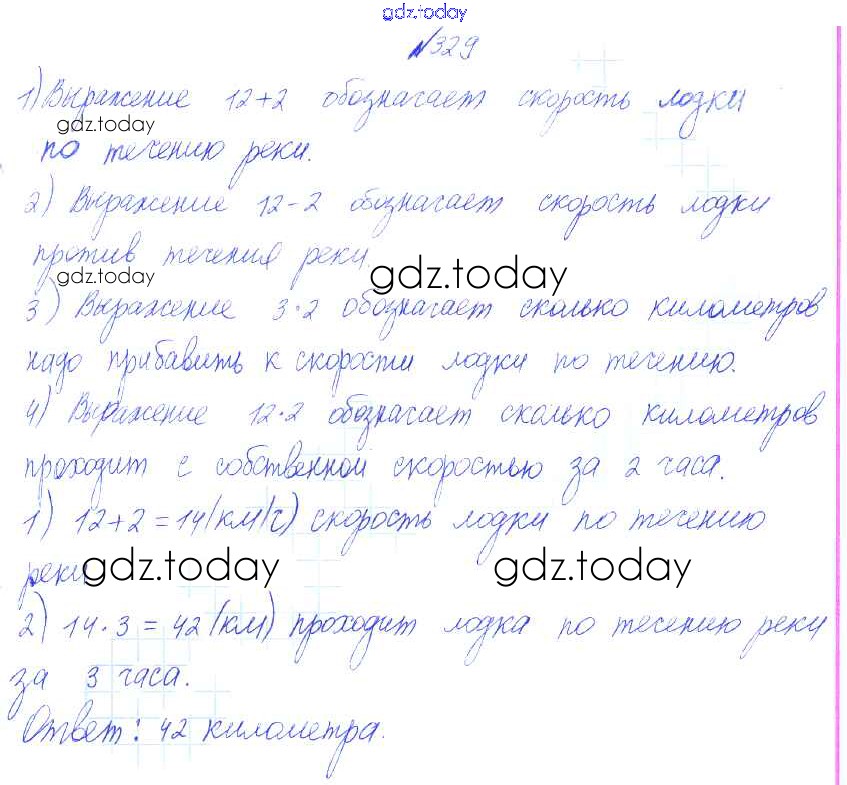 gdz.today
№329
1) Выражение 12+2 обозначает скорость лодки
gdz.today
по течению реки.
2) Выражение 12-2 обозначает скорость лодки
против течения реки
gdz.today gdz.today
3) Выражение 3·2 обозначает сколько километров
надо прибавить к скорости лодки по течению.
4) Выражение 12·2 обозначает сколько километров
проходит с собственной скоростью за 2 часа.
1) 12+2=14(км/ч) скорость лодки по течению
реки gdz.today gdz.today
2) 14·3=42(км) проходит лодка по течению реки
за 3 часа.
Ответ: 42 километра.